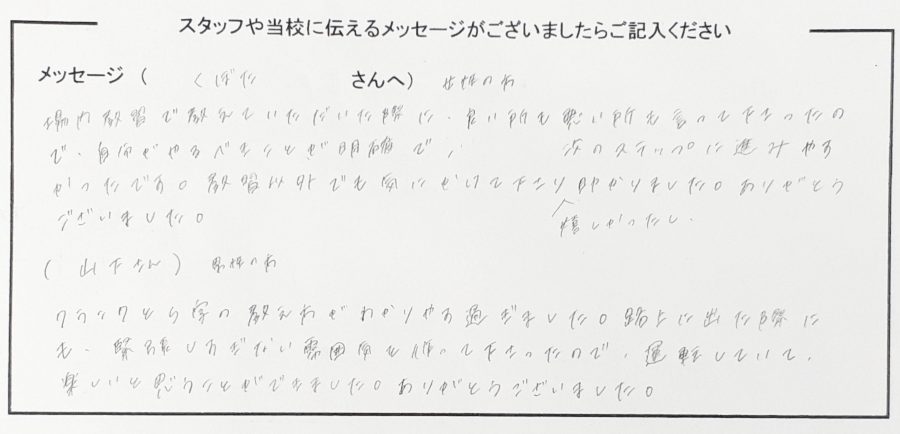 スタッフや当校に伝えるメッセージがございましたらご記入ください
メッセージ ( くぼた さんへ) 女性の方
場内教習で教えていただいた際に、良い所も悪い所も言って下さったの
で、自分がやるべきことが明確で、次のステップに進みやす
かったです。教習以外でも気にかけて下さり助かりました。ありがとう
ございました。 嬉しかったし、
( 山下さん ) 男性の方
クランクとS字の教え方がわかりやす過ぎました。路上に出た際に
も、緊張しすぎない雰囲気を作って下さったので、運転していて、
楽しいと思うことができました。ありがとうございました。